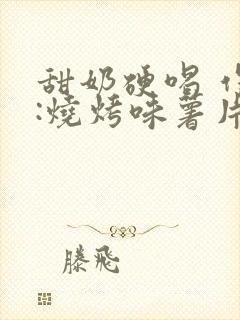 甜奶硬唱
:燒烤味薯片
滕飛